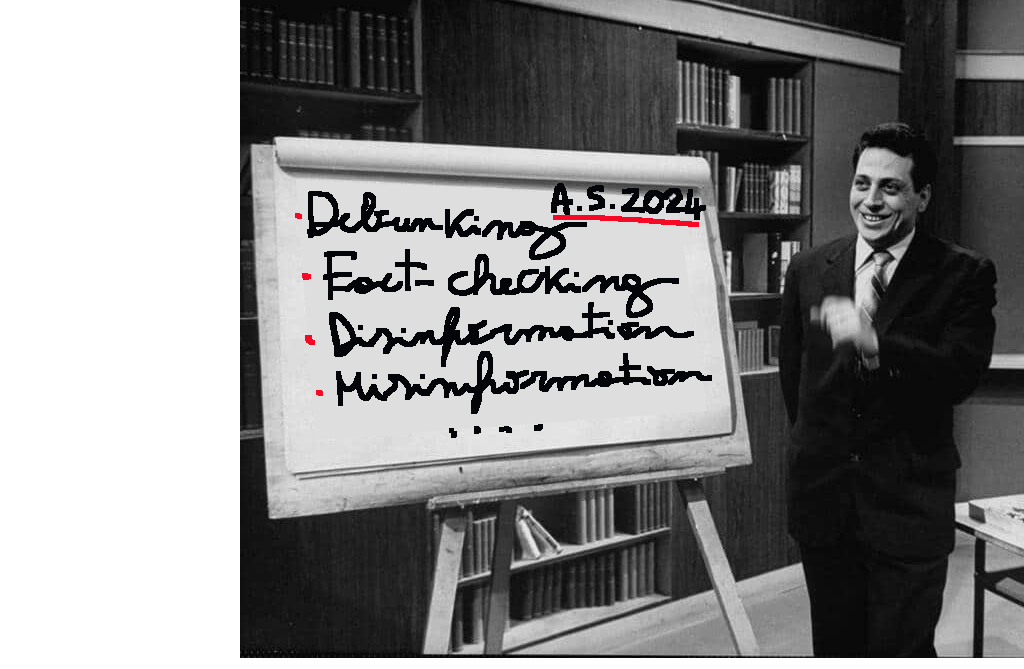 A.S. 2024
• Debunking
• Fact-checking
• Disinformation
• Misinformation
....